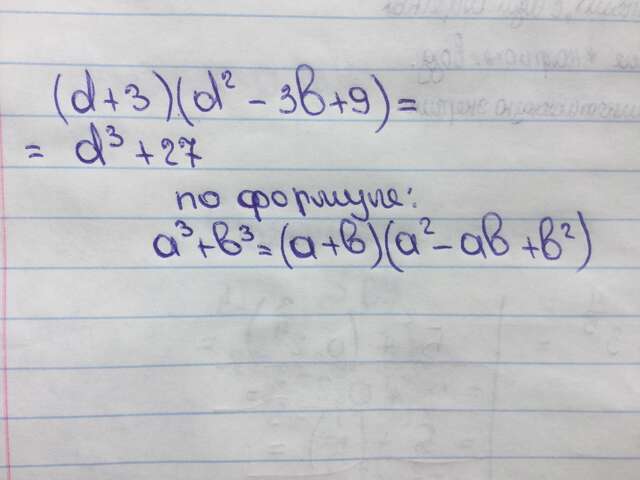 (d+3)(d² - 3в+9)=
= d³+27
по формуле:
a³+в³=(a+в)(a²-aв+в²)